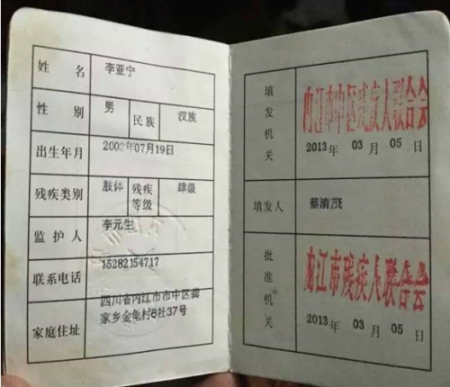 姓名 李亚宁
性别 男 民族 汉族
出生年月 2002年07月19日
残疾类别 肢体 残疾等级 肆级
监护人 李元生
联系电话 15282154717
家庭住址 四川省内江市市中区龚
家乡金龟村8社37号
填发机关 内江市中区残疾人联合会
2013年 03月 05.日
填发人 蔡清茂
批准机关 内江市残疾人联合会
2013年 03月 05.日